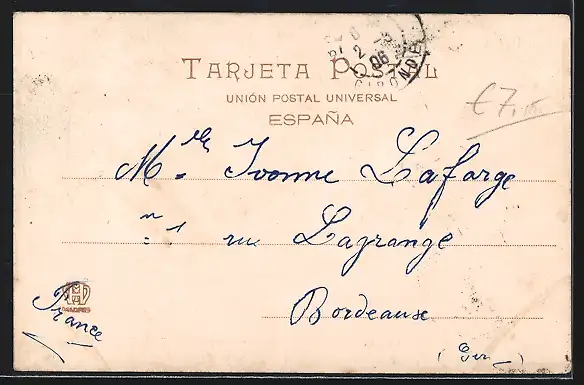 TARJETA POSTAL
UNIÓN POSTAL UNIVERSAL
ESPAÑA
GIRONDE
2 - 3
06
€7,15
Mlle Ivonne Lafarge
n 1 rue Lagrange
Bordeaux
France